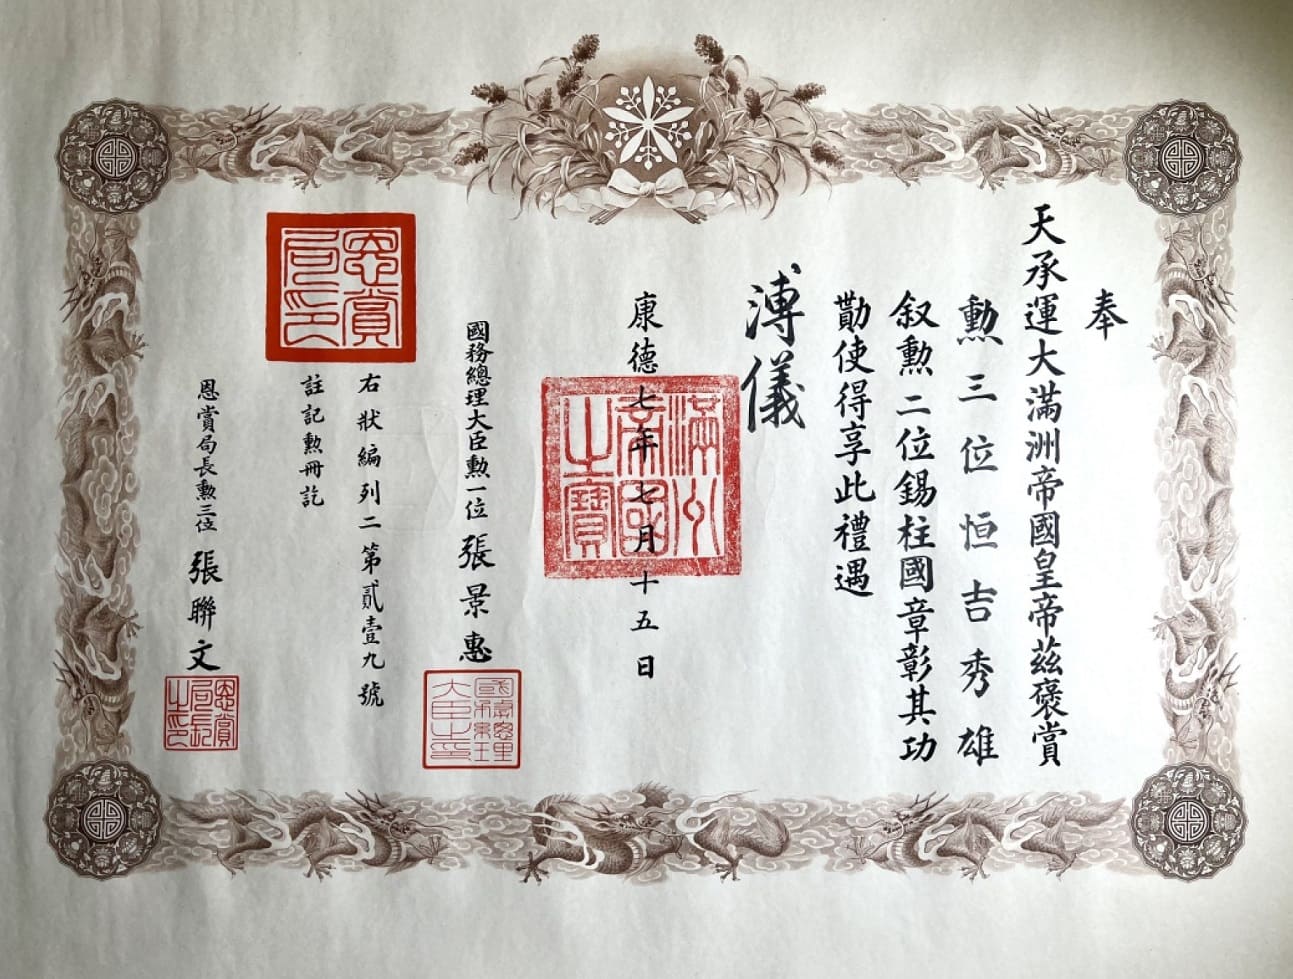 奉
天承運大滿洲帝國皇帝茲褒賞
勳三位恒吉秀雄
叙勳二位錫柱國章彰其功
勩使得享此禮遇
溥儀
康德七年七月十五日
滿洲帝國之寶
國務總理大臣勲一位張景惠
國務總理大臣之印
右狀編列二第貳壹九號
註記勲冊訖
恩賞局印
恩賞局長勲三位張聯文
恩賞局長之印